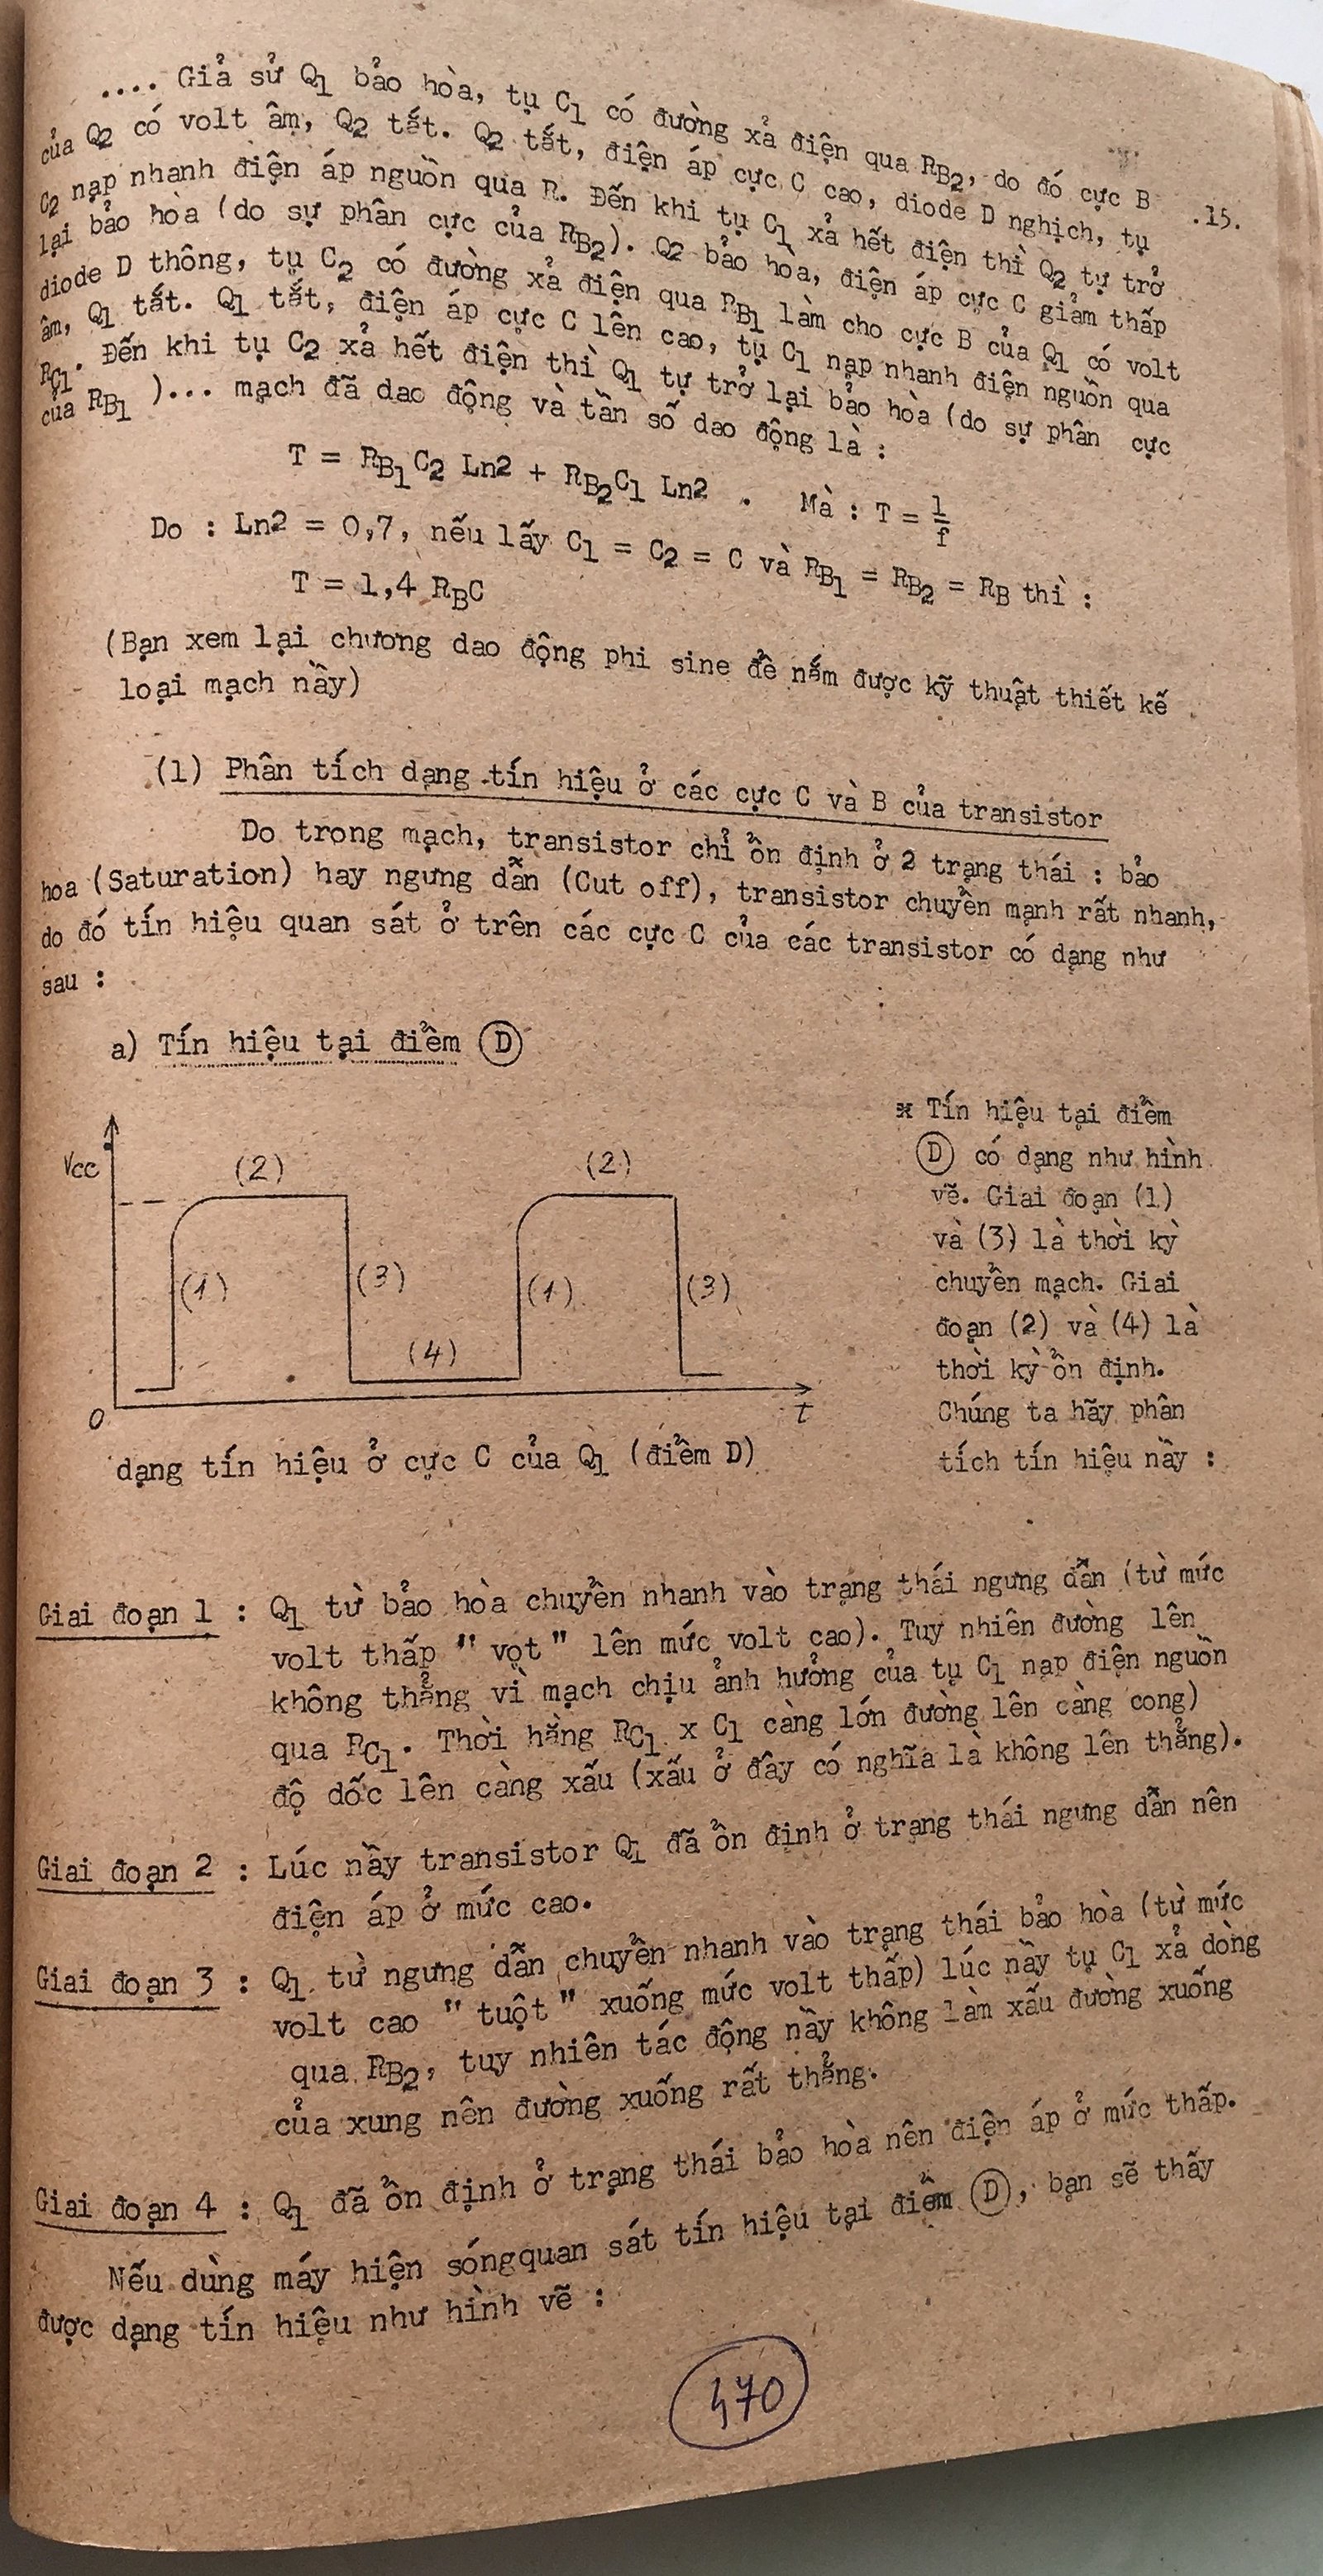 .... Giả sử Q1 bảo hòa, tụ C1 có đường xả điện qua RB2, do đó cực B
.15.
của Q2 có volt âm, Q2 tắt. Q2 tắt, điện áp cực C cao, diode D nghịch, tụ
C2 nạp nhanh điện áp nguồn qua R. Đến khi tụ C1 xả hết điện thì Q2 tự trở
lại bảo hòa (do sự phân cực của RB2). Q2 bảo hòa, điện áp cực C giảm thấp
diode D thông, tụ C2 có đường xả điện qua RB1 làm cho cực B của Q1 có volt
âm, Q1 tắt. Q1 tắt, điện áp cực C lên cao, tụ C1 nạp nhanh điện nguồn qua
RC1. Đến khi tụ C2 xả hết điện thì Q1 tự trở lại bảo hòa (do sự phân cực
của RB1 )... mạch đã dao động và tần số dao động là :
T = RB1C2 Ln2 + RB2C1 Ln2 . Mà : T = 1/f
Do : Ln2 = 0,7, nếu lấy C1 = C2 = C và RB1 = RB2 = RB thì :
T = 1,4 RBC
(Bạn xem lại chương dao động phi sine để nắm được kỹ thuật thiết kế
loại mạch nầy)
(1) Phân tích dạng tín hiệu ở các cực C và B của transistor
Do trong mạch, transistor chỉ ổn định ở 2 trạng thái : bảo
hoa (Saturation) hay ngưng dẫn (Cut off), transistor chuyển mạnh rất nhanh,
do đó tín hiệu quan sát ở trên các cực C của các transistor có dạng như
sau :
a) Tín hiệu tại điểm D
Vcc
(2)
(2)
(1)
(3)
(1)
(3)
(4)
0
t
dạng tín hiệu ở cực C của Q1 (điểm D)
* Tín hiệu tại điểm
D có dạng như hình
vẽ. Giai đoạn (1)
và (3) là thời kỳ
chuyển mạch. Giai
đoạn (2) và (4) là
thời kỳ ổn định.
Chúng ta hãy phân
tích tín hiệu nầy :
Giai đoạn 1 : Q1 từ bảo hòa chuyển nhanh vào trạng thái ngưng dẫn (từ mức
volt thấp " vọt " lên mức volt cao). Tuy nhiên đường lên
không thẳng vì mạch chịu ảnh hưởng của tụ C1 nạp điện nguồn
qua RC1. Thời hằng RC1 x C1 càng lớn đường lên càng cong)
độ dốc lên càng xấu (xấu ở đây có nghĩa là không lên thẳng).
Giai đoạn 2 : Lúc nầy transistor Q1 đã ổn định ở trạng thái ngưng dẫn nên
điện áp ở mức cao.
Giai đoạn 3 : Q1 từ ngưng dẫn chuyển nhanh vào trạng thái bảo hòa (từ mức
volt cao " tuột " xuống mức volt thấp) lúc nầy tụ C1 xả dòng
qua RB2, tuy nhiên tác động nầy không làm xấu đường xuống
của xung nên đường xuống rất thẳng.
Giai đoạn 4 : Q1 đã ổn định ở trạng thái bảo hòa nên điện áp ở mức thấp.
Nếu dùng máy hiện sóngquan sát tín hiệu tại điểm D, bạn sẽ thấy
được dạng tín hiệu như hình vẽ :
470